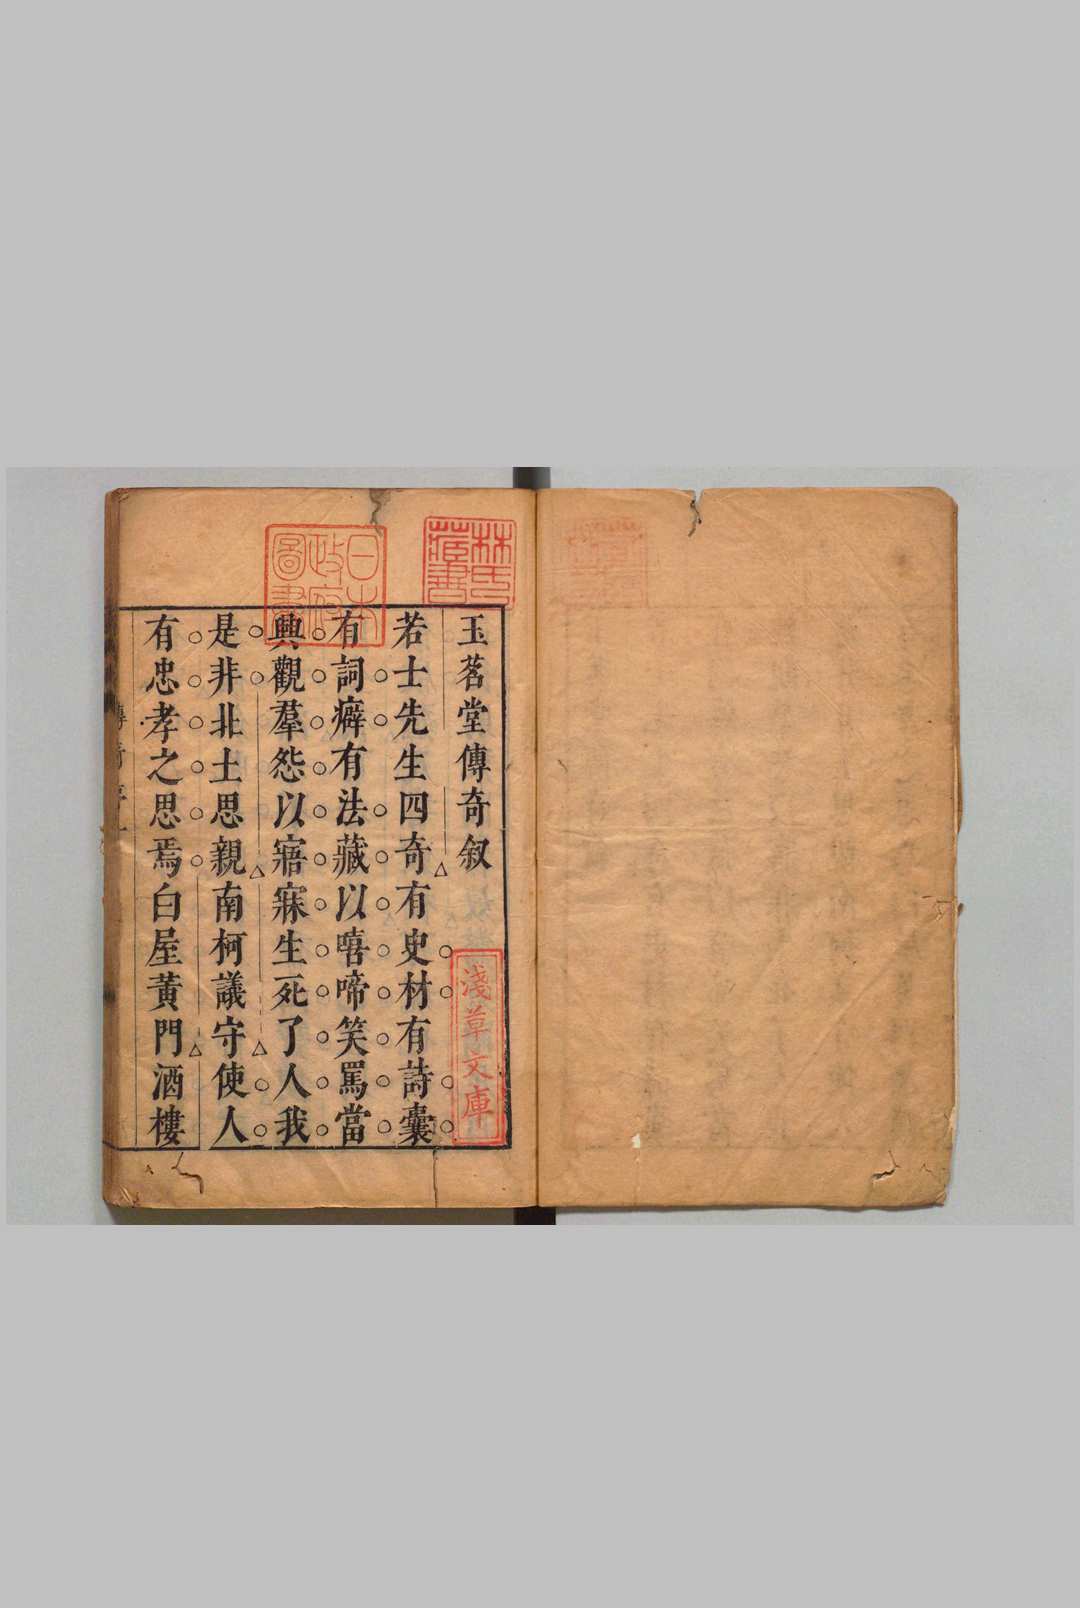 玉茗堂傳奇叙
若士先生四奇有史材有詩囊
有詞癖有法藏以嘻啼笑罵當
興觀羣怨以寤寐生死了人我
是非北土思親南柯議守使人
有忠孝之思焉白屋黃門酒樓
林氏
藏書
日本
政府
圖書
淺草文庫